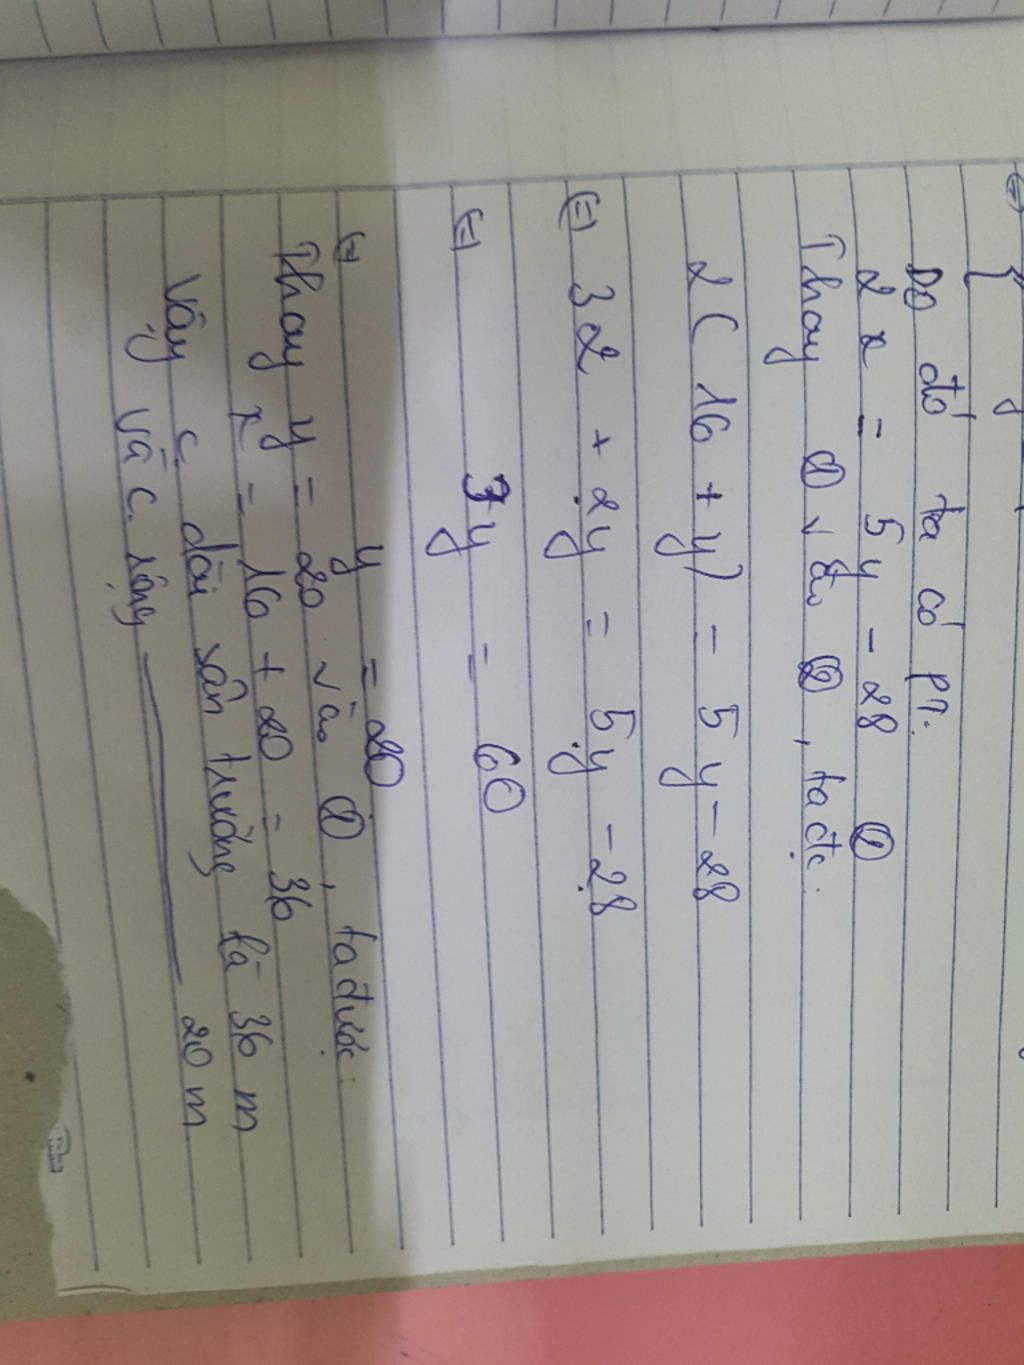 Do đó ta có pt.
2x = 5y - 28 ②
Thay ① vào ②, ta đc:
2(16 + y) = 5y - 28
⇔ 32 + 2y = 5y - 28
⇔ 3y = 60
⇔ y = 20
Thay y = 20 vào ①, ta được:
x = 16 + 20 = 36
Vậy c. dài sân trường là 36 m
và c. rộng ——— 20 m